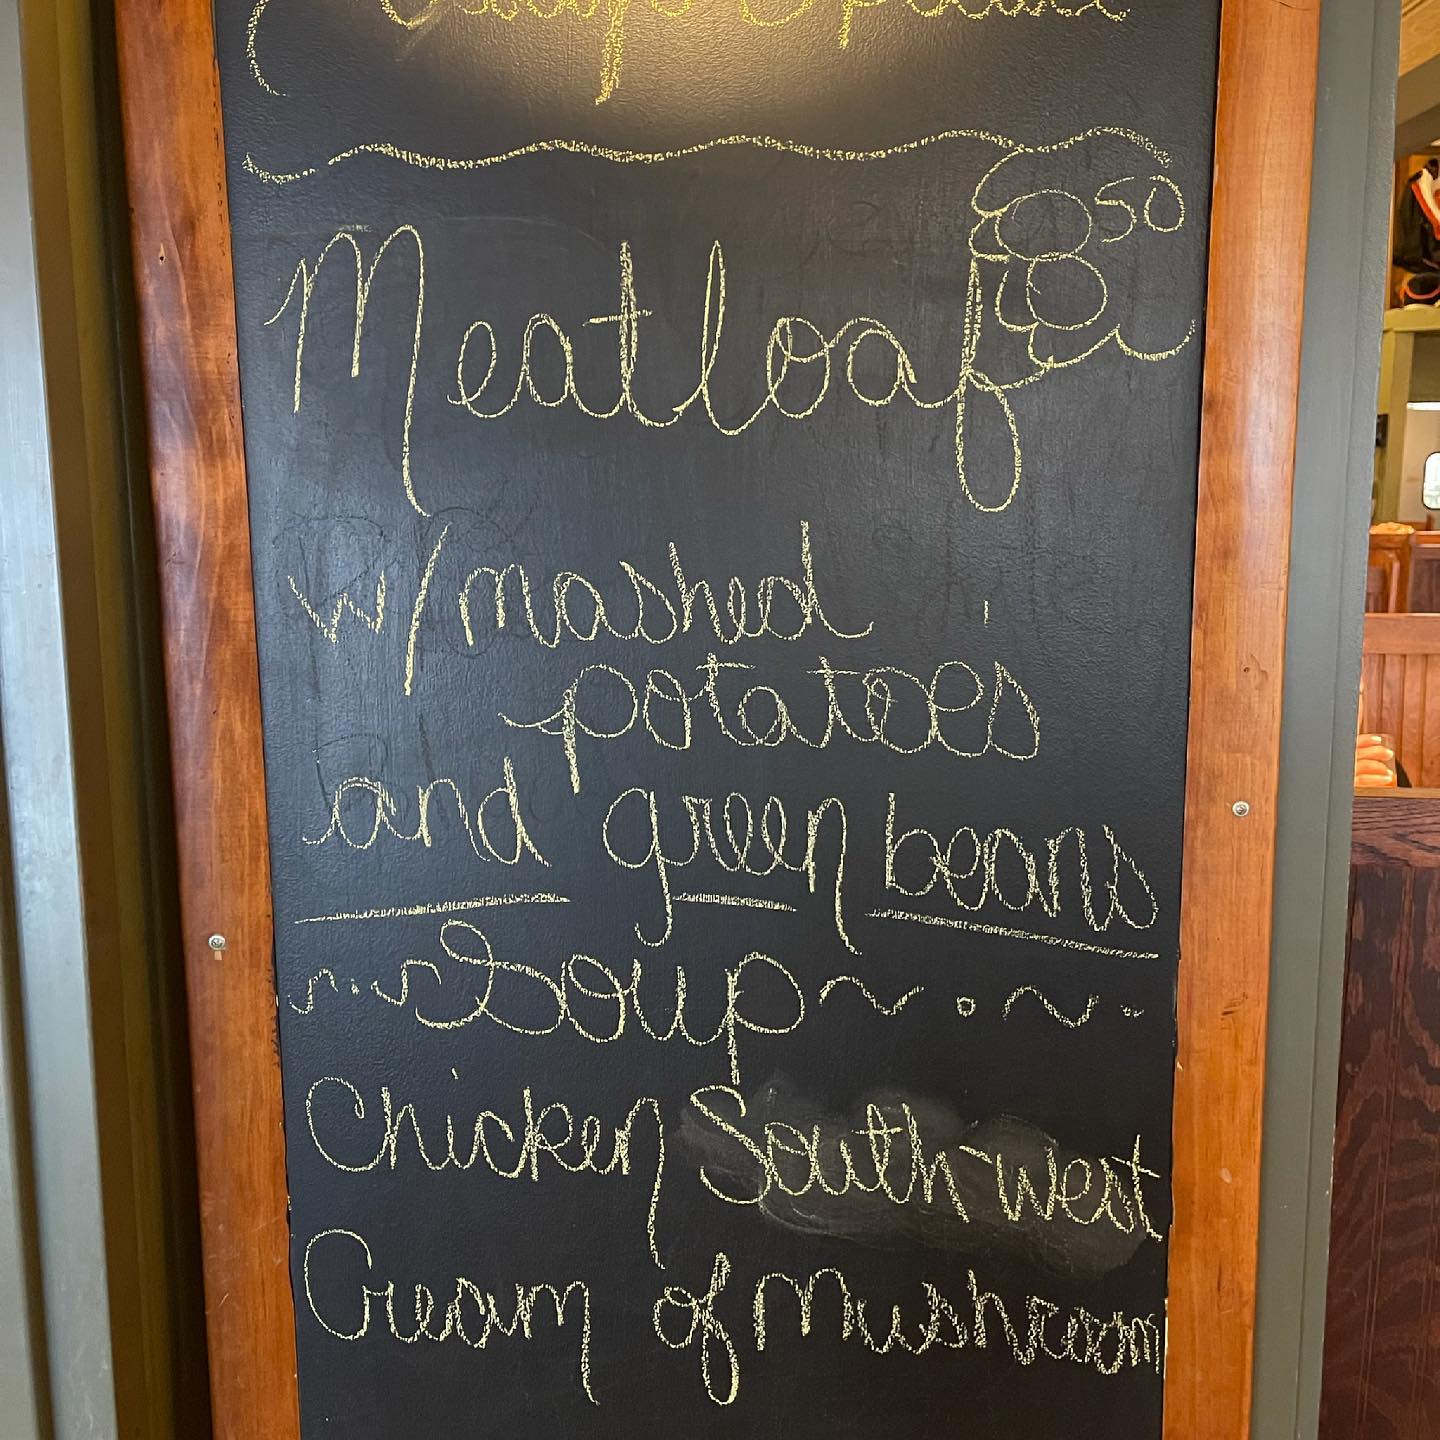 Today's Special
8 50
Meatloaf
w/mashed
potatoes
and green beans
Soup
Chicken South-west
Cream of Mushroom